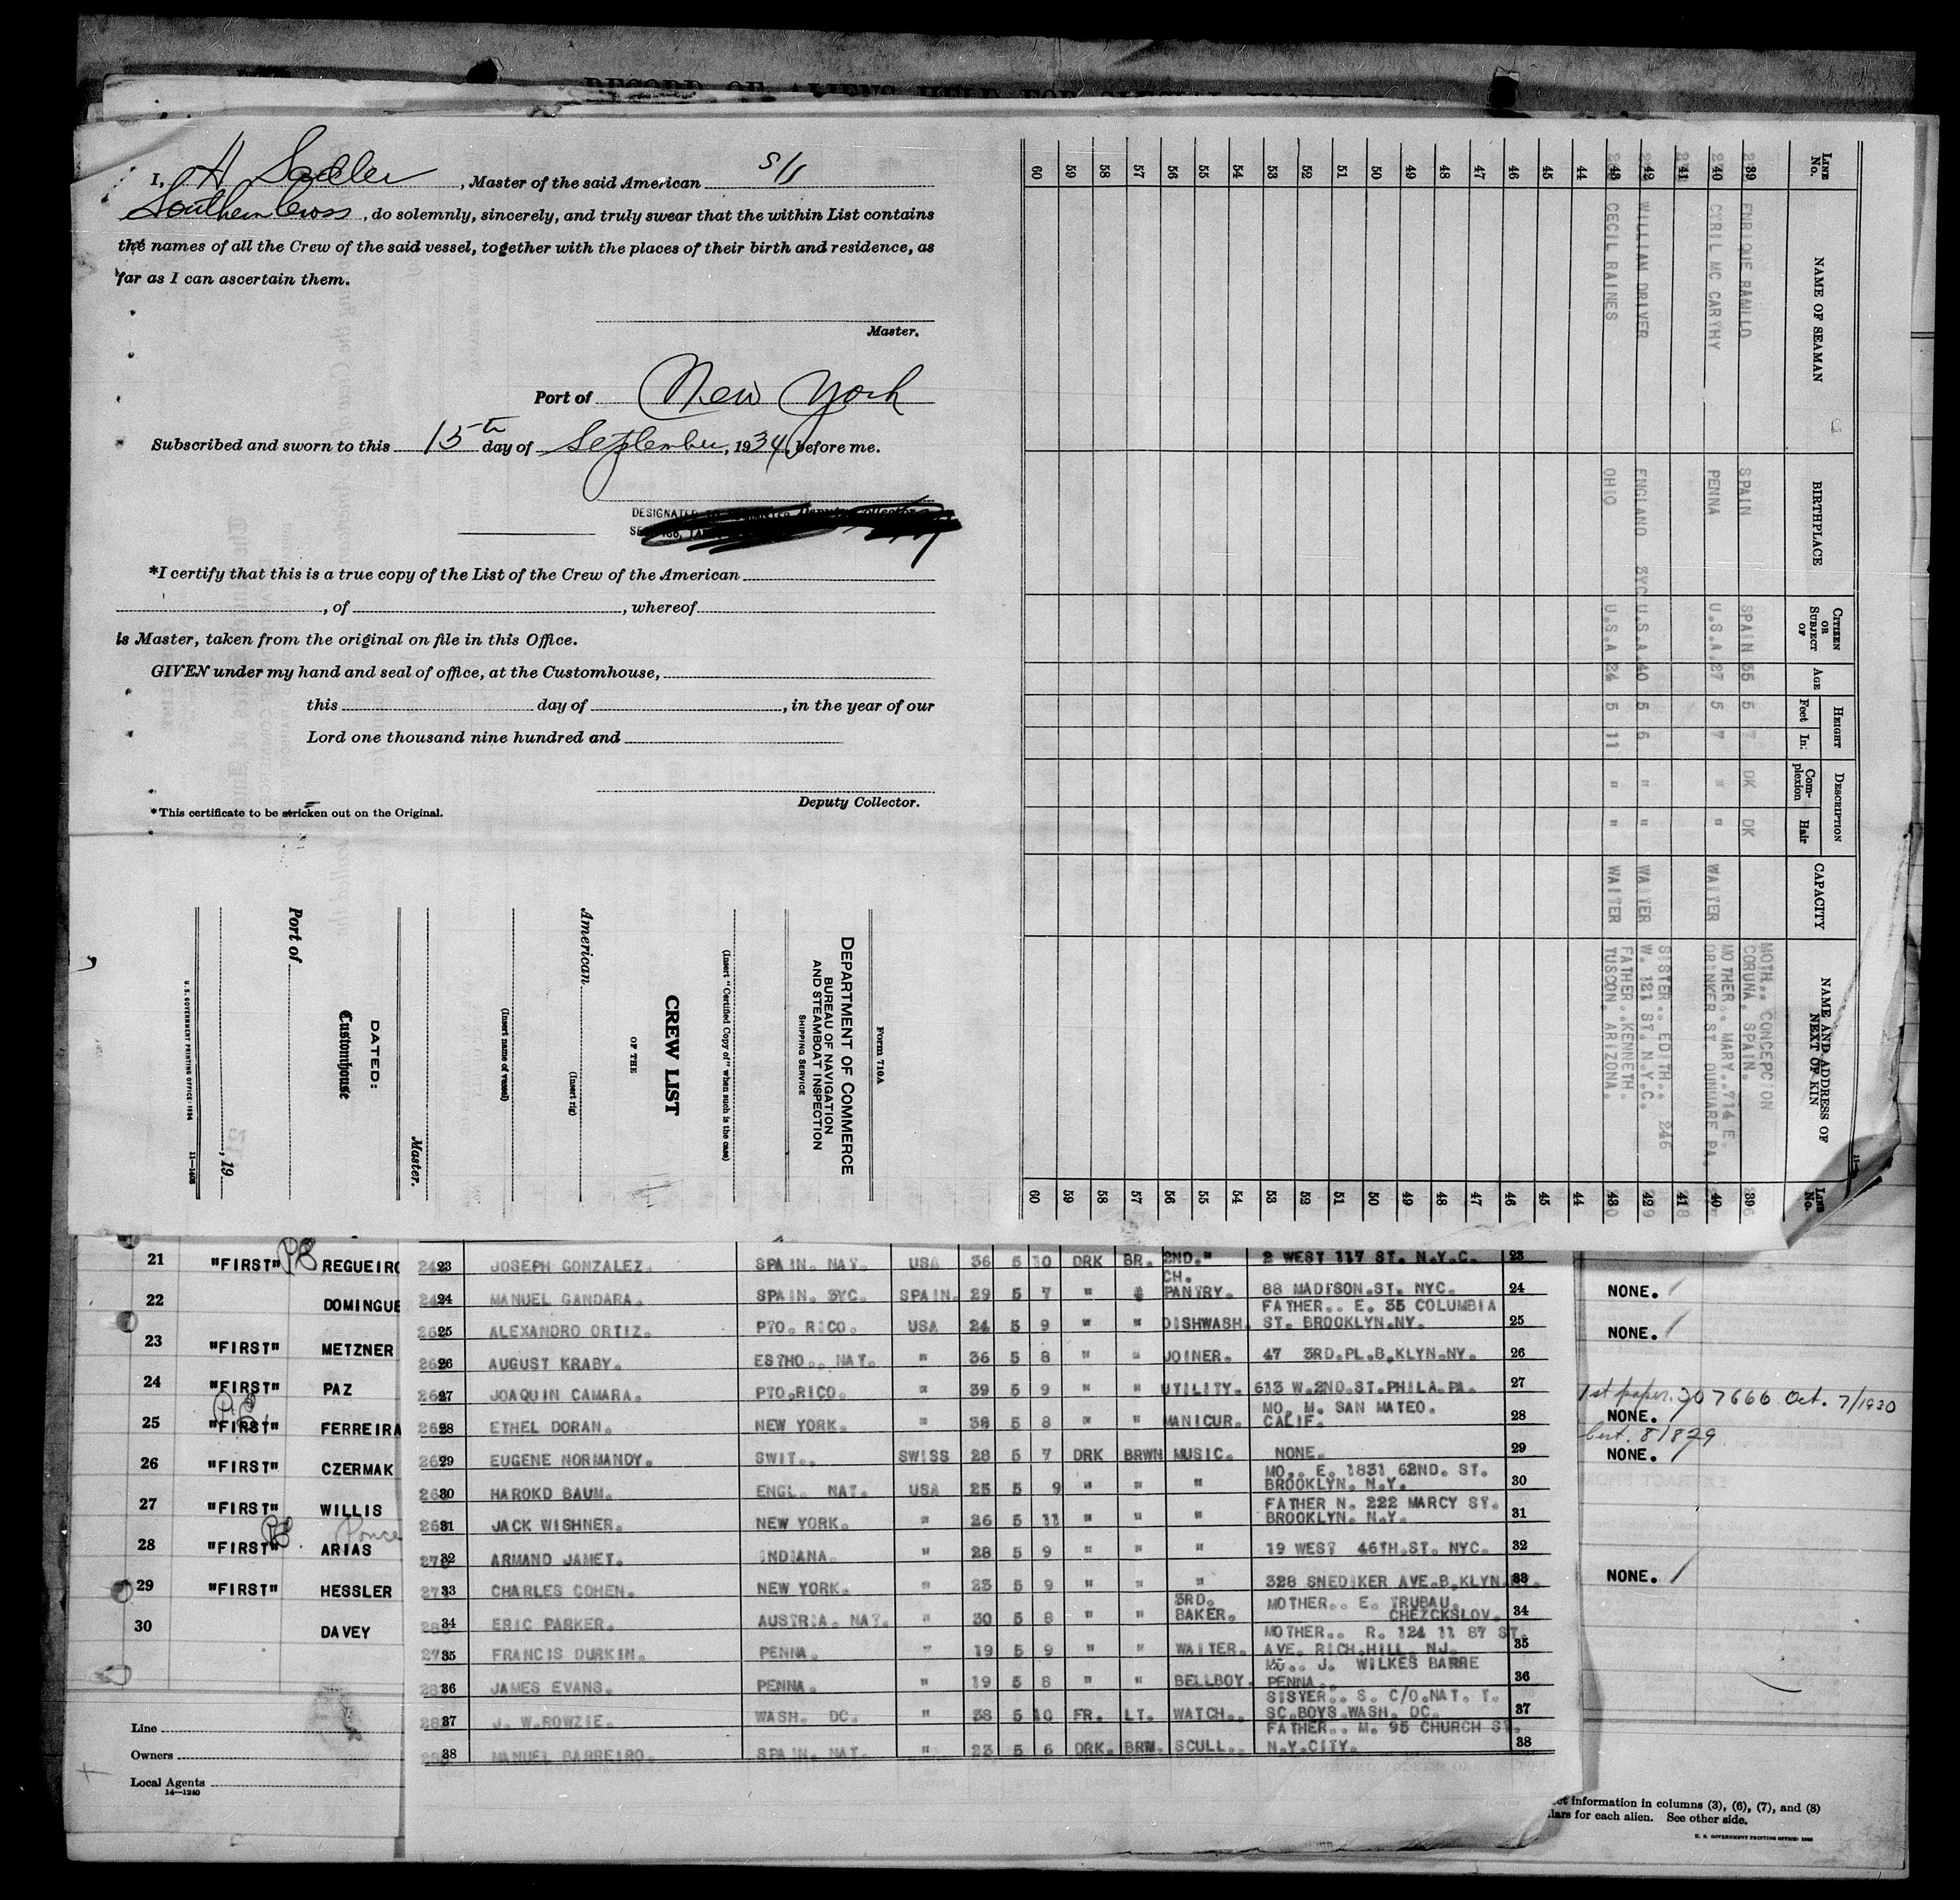 RECORD OF ALIENS HELD FOR SPECIAL
I, H Sadler, Master of the said American S/S
Southern Cross, do solemnly, sincerely, and truly swear that the within List contains
the names of all the Crew of the said vessel, together with the places of their birth and residence, as
far as I can ascertain them.
Master.
Port of New York
Subscribed and sworn to this 15th day of September, 1934, before me.
DESIGNATED Deputy Collector
*I certify that this is a true copy of the List of the Crew of the American
, of , whereof
is Master, taken from the original on file in this Office.
GIVEN under my hand and seal of office, at the Customhouse,
this day of , in the year of our
Lord one thousand nine hundred and
Deputy Collector.
*This certificate to be stricken out on the Original.
Form 710A
DEPARTMENT OF COMMERCE
BUREAU OF NAVIGATION
AND STEAMBOAT INSPECTION
SHIPPING SERVICE
(Insert "Certified Copy of" when such is the case)
CREW LIST
OF THE
American
(Insert rig)
(Insert name of vessel)
Master.
DATED:
Customhouse
Port of
, 19
U. S. GOVERNMENT PRINTING OFFICE: 1934 11—1408
LINE No. NAME OF SEAMAN BIRTHPLACE CITIZEN OR SUBJECT OF AGE HEIGHT Feet In. DESCRIPTION Complexion Hair CAPACITY NAME AND ADDRESS OF NEXT OF KIN LINE No.
MOTH.. CONCEPCION
39 ENRIQUE RAMLLO SPAIN SPAIN 35 5 7 DK DK CORUNA, SPAIN. 39
MOTHER.. MARY..714 E.
40 CYRIL MC CARTHY PENNA U.S.A. 27 5 7 " " WAITER DRINKER ST. DUNMARE PA. 40
41 41
SISTER.. EDITH.. 246
42 WILLIAM DRIVER ENGLAND 3YC U.S.A. 40 5 6 " " WAITER W. 121 ST. N.Y.C. 42
FATHER..KENNETH.
43 CECIL RAINES OHIO U.S.A 24 5 11 " " WAITER TUSCON, ARIZONA. 43
44 44
45 45
46 46
47 47
48 48
49 49
50 50
51 51
52 52
53 53
54 54
55 55
56 56
57 57
58 58
59 59
60 60
21 "FIRST" REGUEIRO
22 DOMINGUE
23 "FIRST" METZNER
24 "FIRST" PAZ
25 "FIRST" FERREIRA
26 "FIRST" CZERMAK
27 "FIRST" WILLIS
28 "FIRST" ARIAS Ponce
29 "FIRST" HESSLER
30 DAVEY
Line
Owners
Local Agents
14—1240
23 JOSEPH GONZALEZ. SPAIN. NAT. USA 36 5 10 DRK BR. 2ND." 2 WEST 117 ST. N.Y.C. 23
CH.
24 MANUEL GANDARA. SPAIN. 3YC. SPAIN. 29 5 7 " " PANTRY. 88 MADISON.ST. NYC. 24
FATHER.. E. 35 COLUMBIA
25 ALEXANDRO ORTIZ. PTO. RICO. USA 24 5 9 " " DISHWASH. ST. BROOKLYN.NY. 25
26 AUGUST KRABY. ESTHO.. NAT. " 36 5 8 " " JOINER. 47 3RD.PL.B,KLYN.NY. 26
27 JOAQUIN CAMARA. PTO.RICO. " 39 5 9 " " UTILITY. 613 W.2ND.ST.PHILA.PA. 27
MO. M. SAN MATEO.
28 ETHEL DORAN. NEW YORK. " 38 5 8 " " MANICUR. CALIF. 28
29 EUGENE NORMANDY. SWIT.. SWISS 28 5 7 DRK BRWN MUSIC. NONE. 29
MO.. E. 1831 62ND. ST.
30 HAROKD BAUM. ENGL. NAT. USA 25 5 9 " " " BROOKLYN. N.Y. 30
FATHER N. 222 MARCY ST.
31 JACK WISHNER. NEW YORK. " 26 5 11 " " " BROOKLYN. N.Y. 31
32 ARMAND JAMET. INDIANA. " 28 5 9 " " " 19 WEST 46TH.ST. NYC. 32
33 CHARLES COHEN. NEW YORK. " 23 5 9 " " " 328 SNEDIKER AVE.B,KLYN. 33
3RD. MOTHER.. E. TRUBAU.
34 ERIC PARKER. AUSTRIA. NAT. " 30 5 8 " " BAKER. CHEZCKSLOV. 34
MOTHER.. R. 124 11 87 ST.
35 FRANCIS DURKIN. PENNA. " 19 5 9 " " WAITER. AVE. RICH.HILL. NJ. 35
MO.. J. WILKES BARRE
36 JAMES EVANS. PENNA. " 19 5 8 " " BELLBOY. PENNA.. 36
SISTER.. S. C/O.NAT. T.
37 J. W.ROWZIE. WASH. DC. " 38 5 10 FR. LT. WATCH.. SC.BOYS.WASH. DC. 37
FATHER.. M. 95 CHURCH ST.
38 MANUEL BARREIRO. SPAIN. NAT. " 23 5 6 DRK. BRW. SCULL.. N.Y.CITY. 38
NONE.
NONE.
1st paper. 207666 Oct. 7/1930
NONE.
NONE.
NONE.
information in columns (3), (6), (7), and (8)
for each alien. See other side.
U. S. GOVERNMENT PRINTING OFFICE: